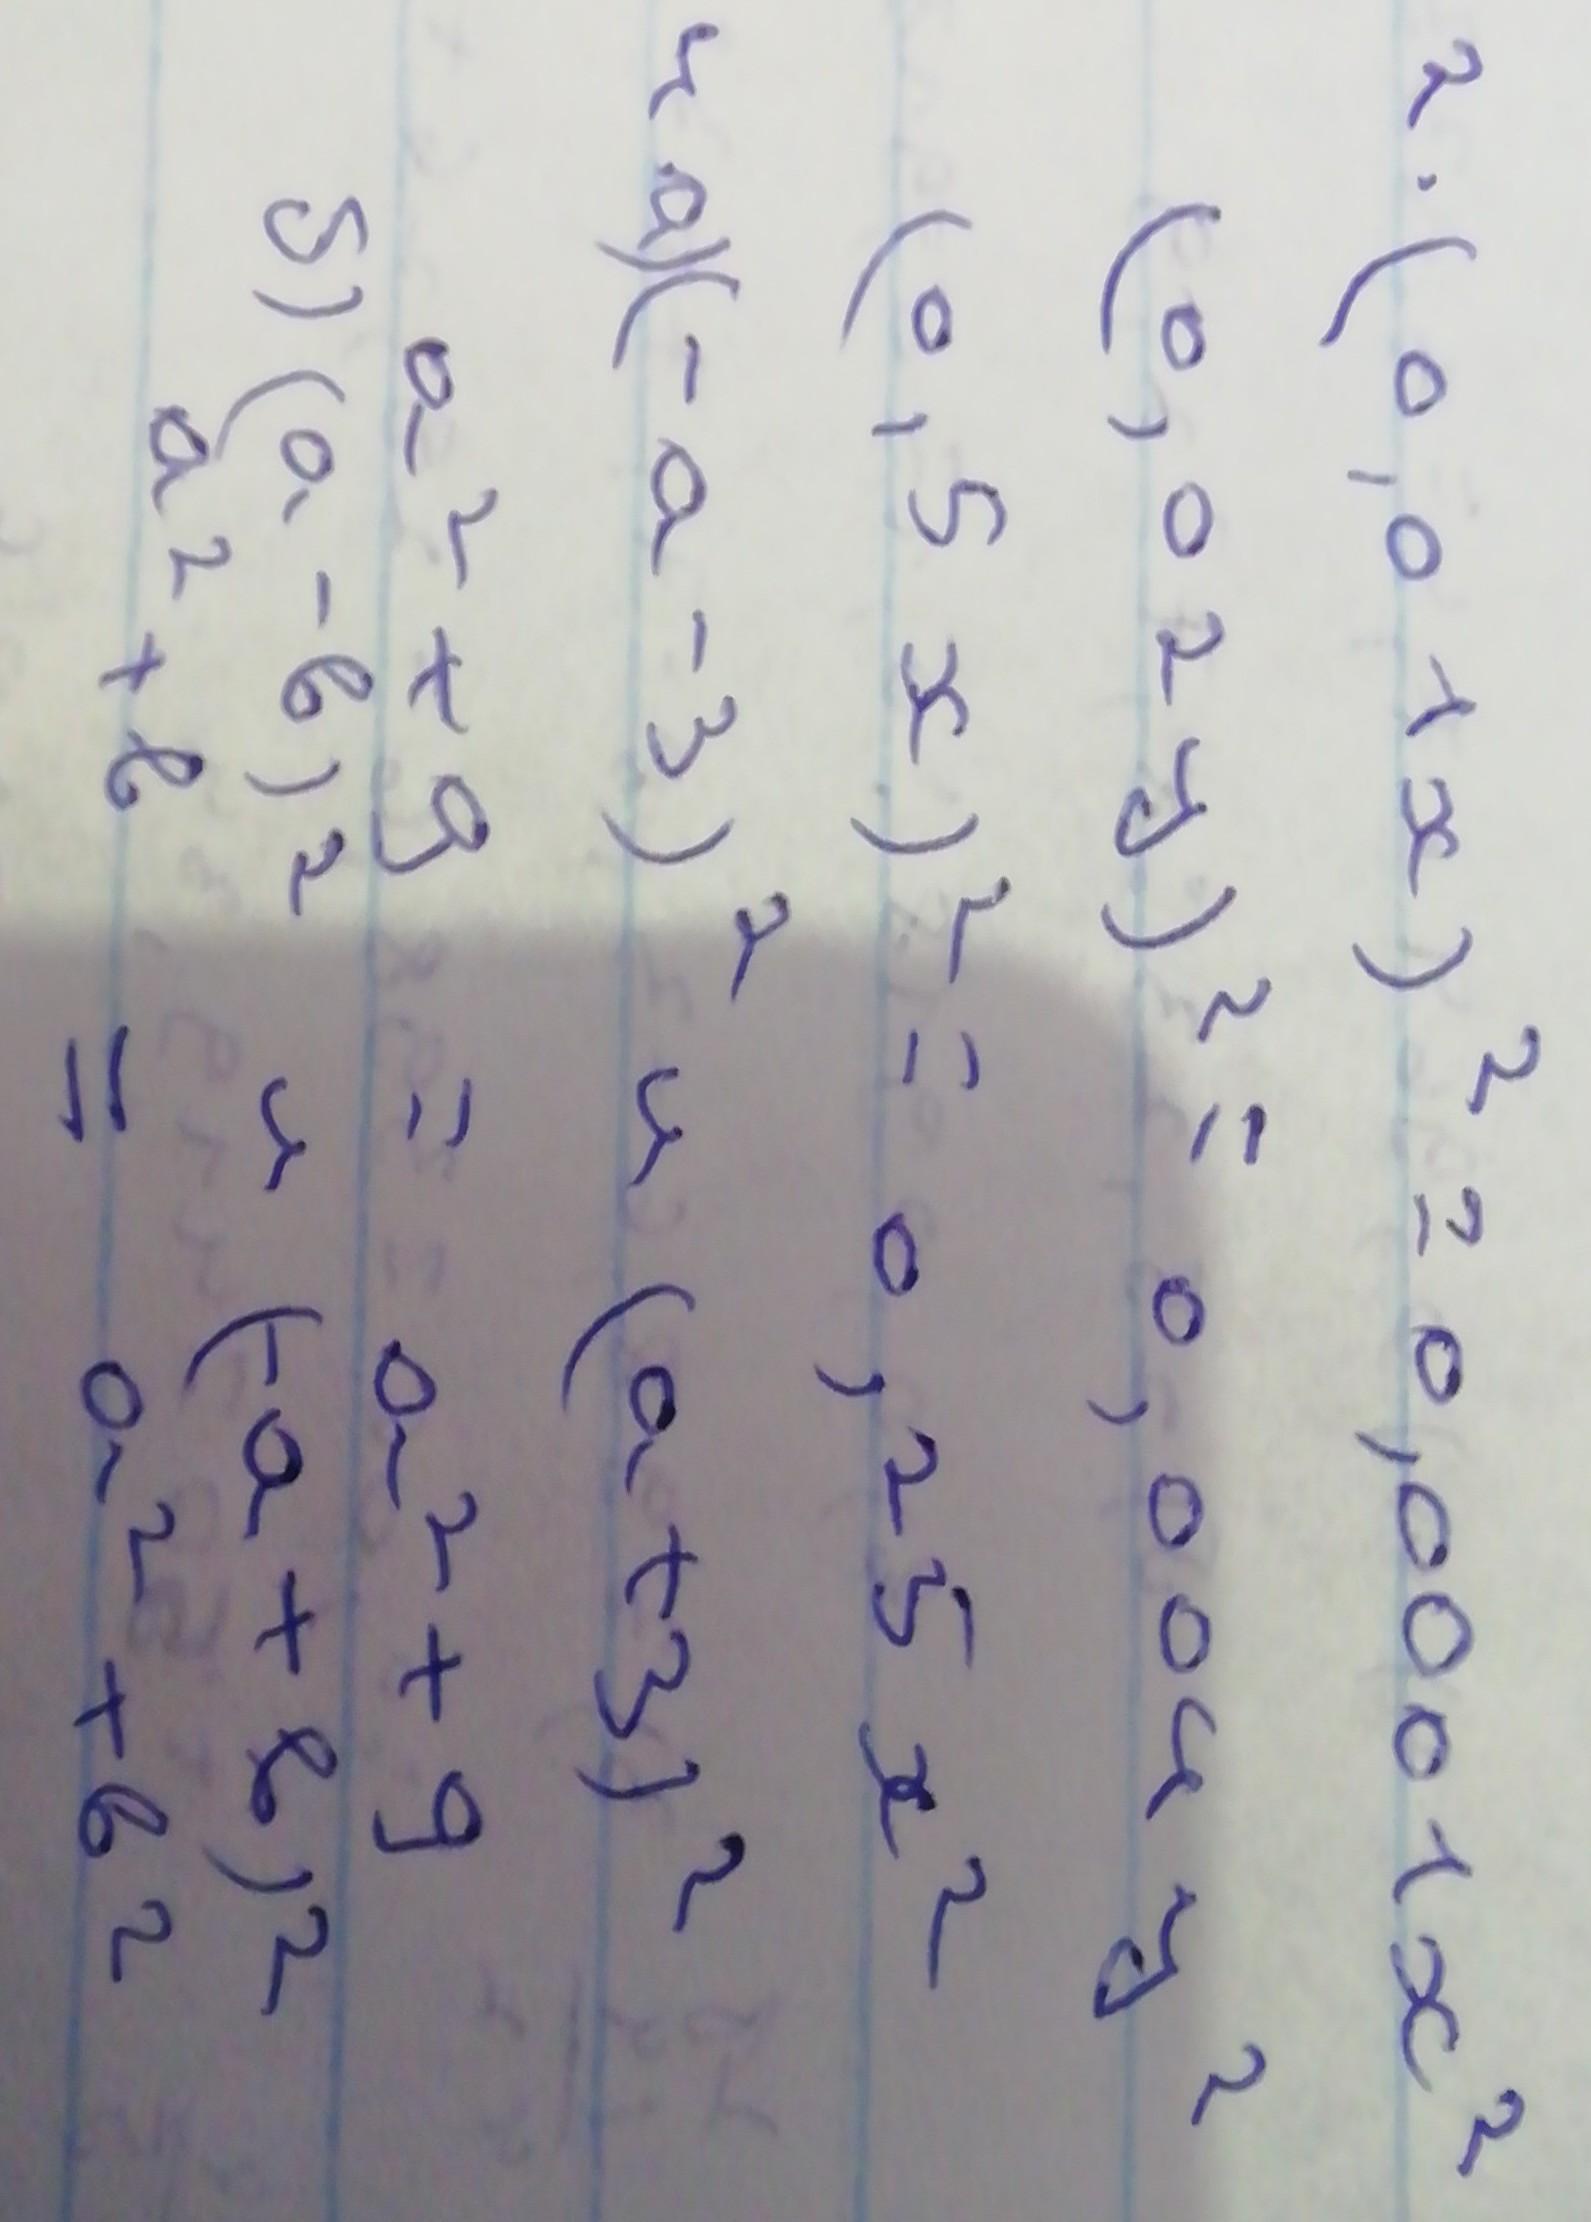 2. (0,01x)² = 0,0001x²
(0,02y)² = 0,004y²
(0,5x)² = 0,25x²
4 a) (-a-3)² и (a+3)²
a²+9 = a²+9
б) (a-в)² и (-a+в)²
a²+в = a²+в²